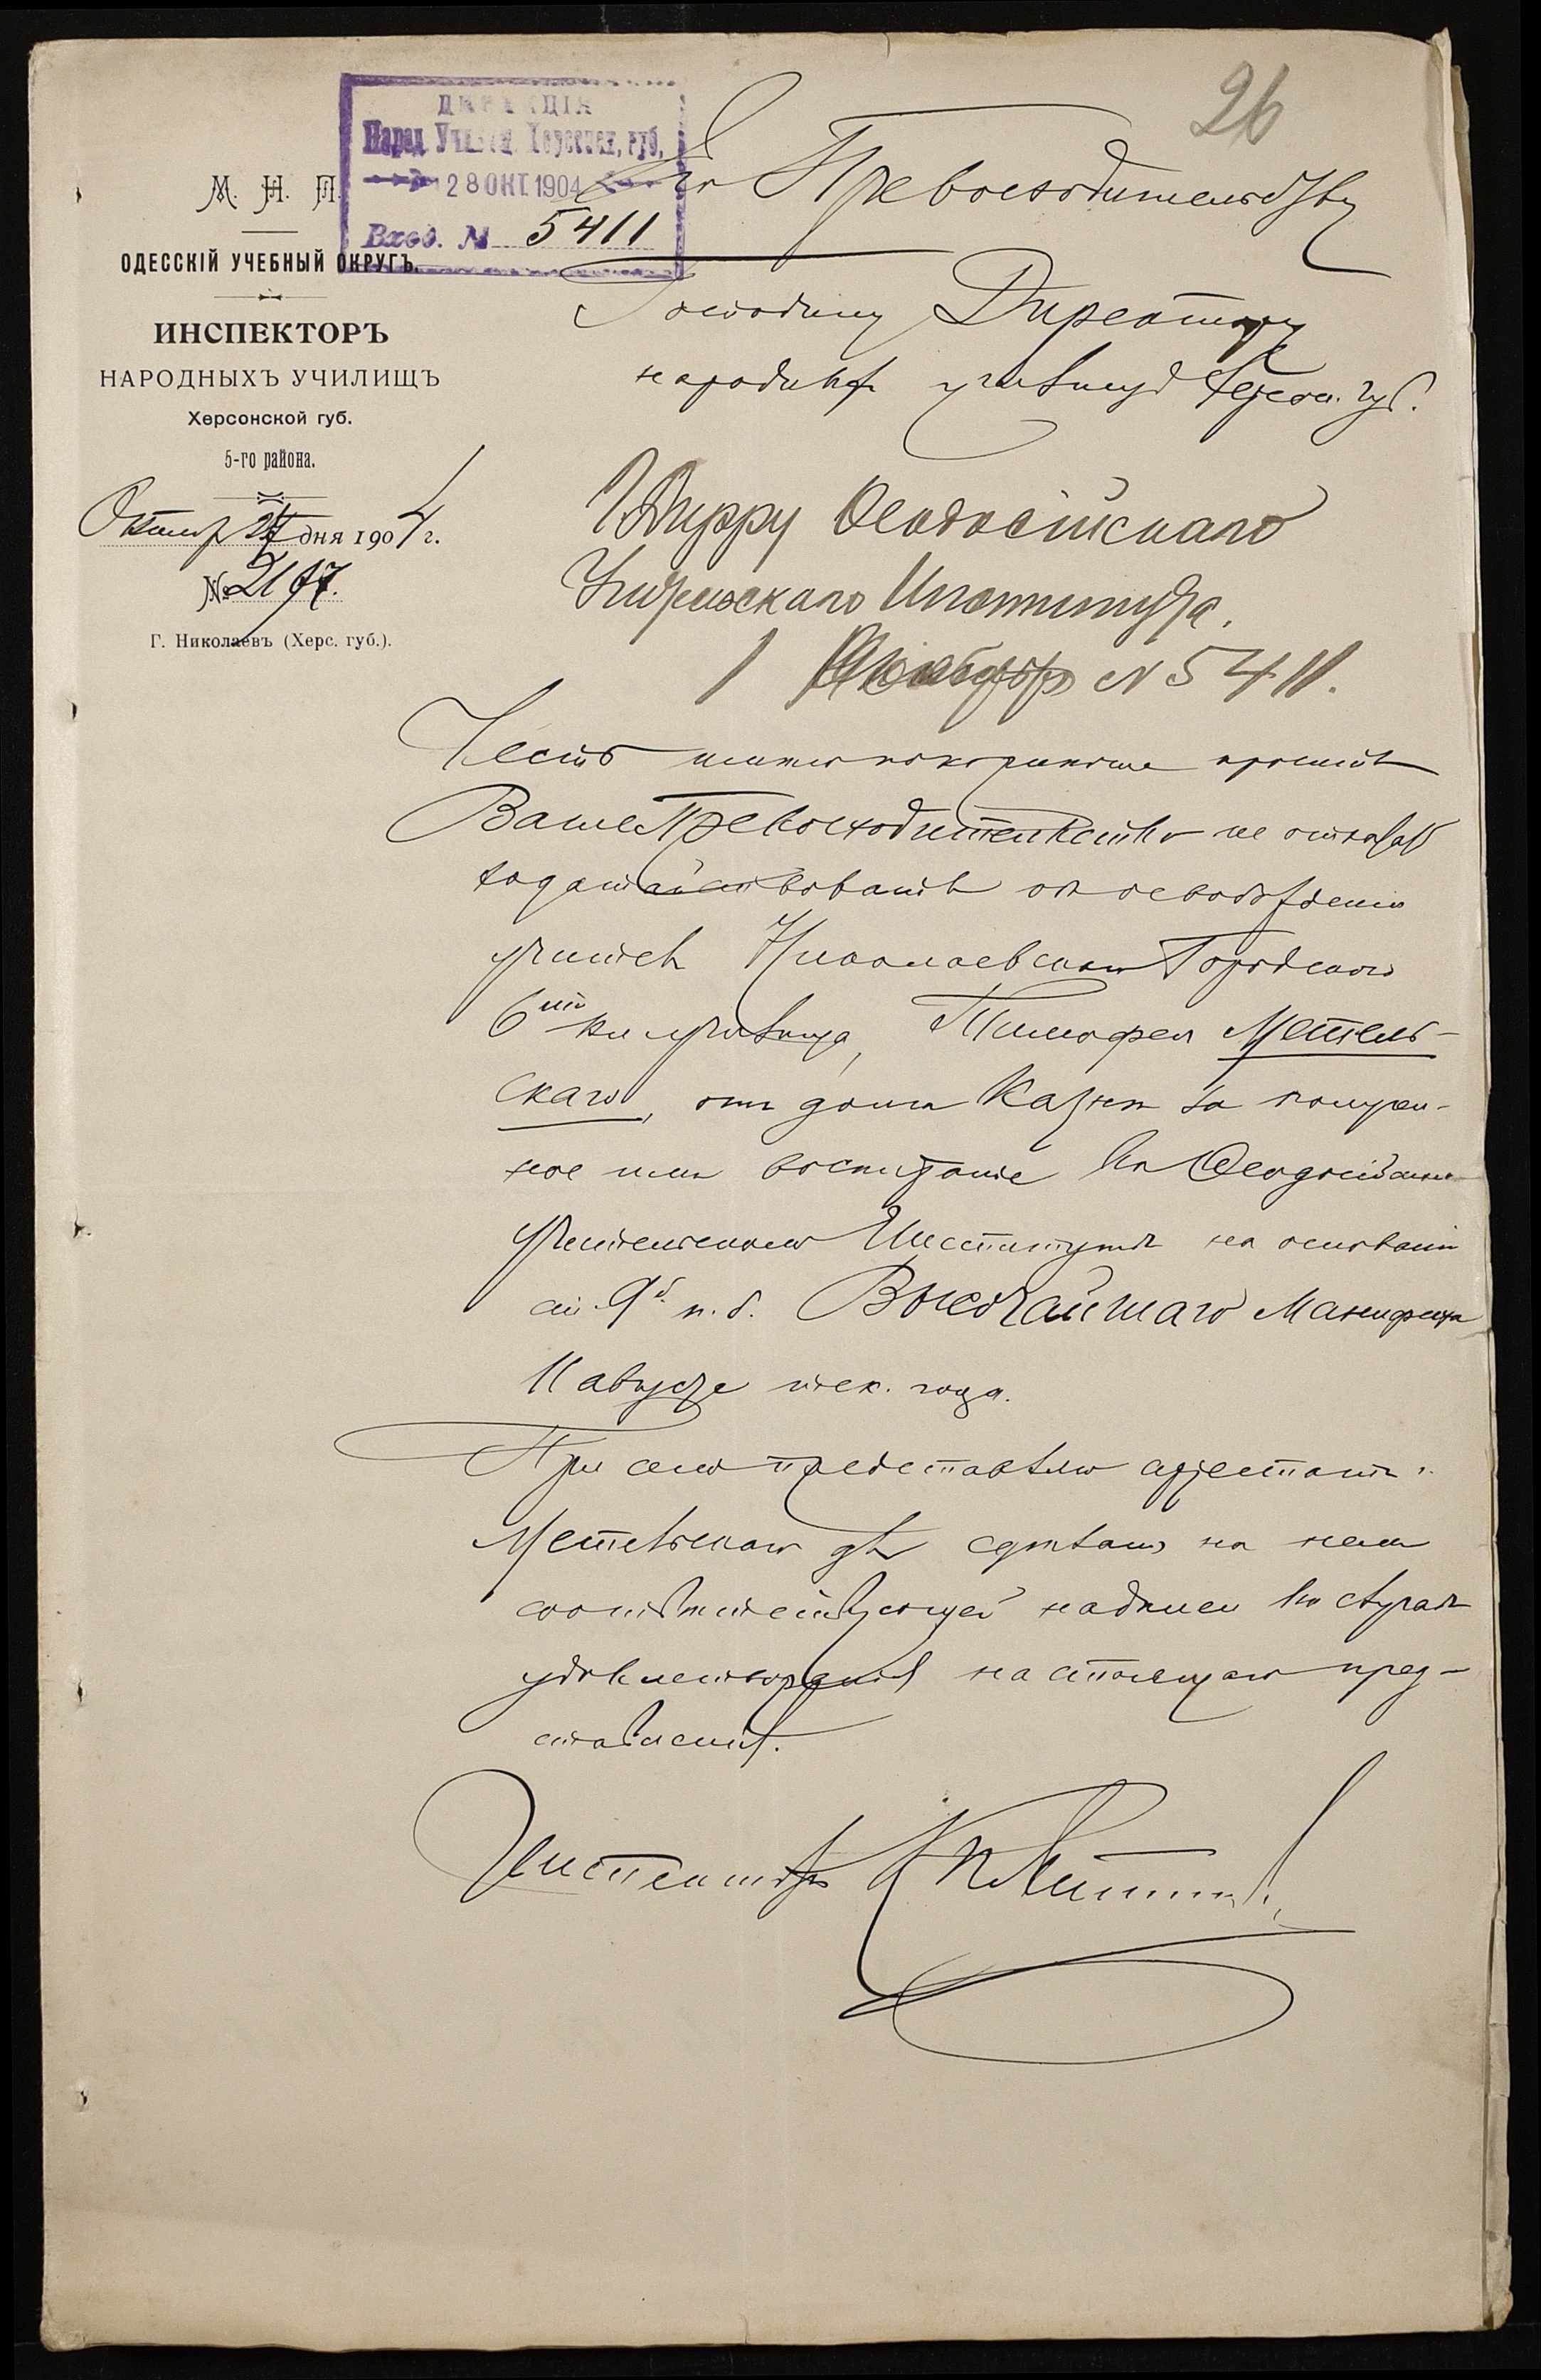 26
ДИРЕКЦІЯ
Народ. Училищ. Херсонск. губ.
28 ОКТ. 1904
Вход. № 5411
М. Н. П.
ОДЕССКІЙ УЧЕБНЫЙ ОКРУГЪ.
ИНСПЕКТОРЪ
НАРОДНЫХЪ УЧИЛИЩЪ
Херсонской губ.
5-го района.
дня 1904 г.
№
Г. Николаевъ (Херс. губ.).
Его Превосходительству
Господину Директору
народныхъ училищъ Херсон. губ.
Г. Дирру Ѳеодосійскаго
Учительскаго Института.
1 Ноября N 5411.
Честь имѣю покорнѣйше просить
Ваше Превосходительство не отказать
ходатайствовать объ освобожденіи
учителя Николаевскаго Городского
6ти кл. училища, Тимофея Метель-
скаго, отъ долга Казнѣ за получен-
ное имъ воспитаніе въ Ѳеодосійскомъ
Учительскомъ Институтѣ на основаніи
ст. 9й п. б. Высочайшаго Манифеста
11 августа тек. года.
При семъ представляю аттестатъ г.
Метельскаго для сдѣланія на немъ
соотвѣтствующей надписи въ случаѣ
удовлетворенія настоящаго пред-
ставленія.
Инспекторъ